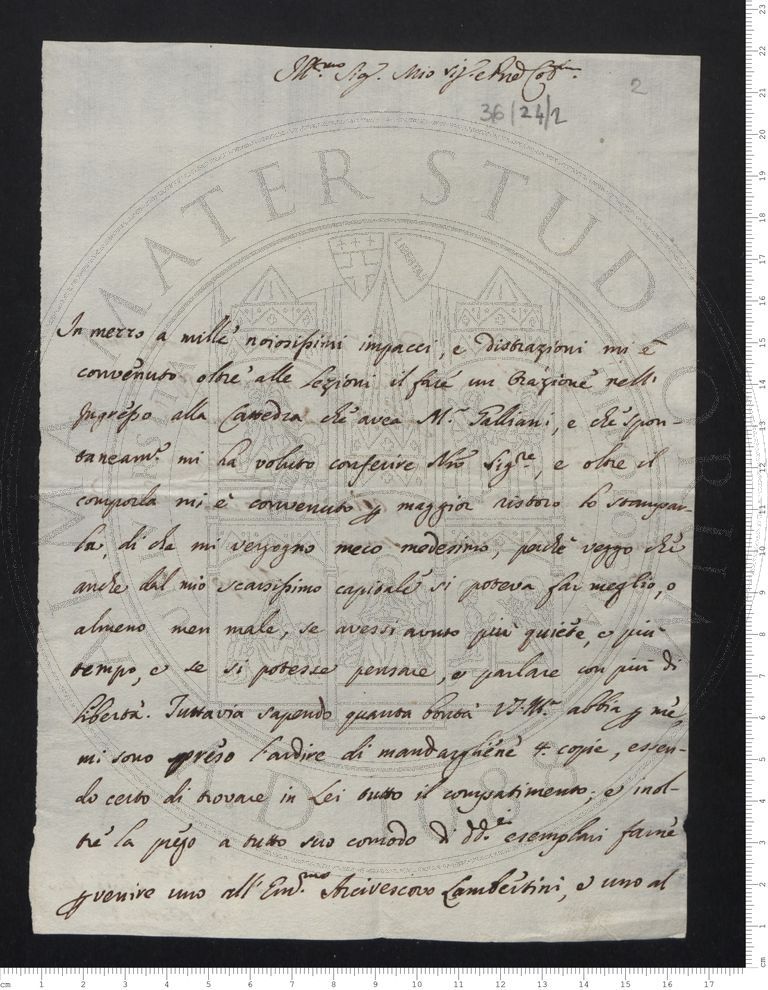 Ill.mo Sig.r Mio Sig.r e Pne Col.mo
2
36/24/2
In mezzo a mille noiosissimi impacci, e distrazioni mi è
convenuto oltre alle Lezioni il fare un Orazione nell'
Ingresso alla Cattedra che avea M.r Galliani, e che spon-
taneam.te mi ha voluto conferire Nro Sig.re, e oltre il
comporla mi è convenuto p maggior ristoro lo stampar-
la, di che mi vergogno meco medesimo, perchè veggo che
anche dal mio scarsissimo capitale si poteva far meglio, o
almeno men male, se avessi avuto più quiete, e più
tempo, e se si potesse pensare, e parlare con più di
libertà. Tuttavia sapendo quanta bontà V.S. Ill.ma abbia p me
mi sono preso l'ardire di mandarglene 4 copie, essen-
do certo di trovare in Lei tutto il compatimento; e inol-
tre la prego a tutto suo comodo di dd.ti esemplari farne
pvenire uno all' Em.mo Arcivescovo Lambertini, e uno al
ALMA MATER STUDIORUM
A.D. 1088
LIBERTAS